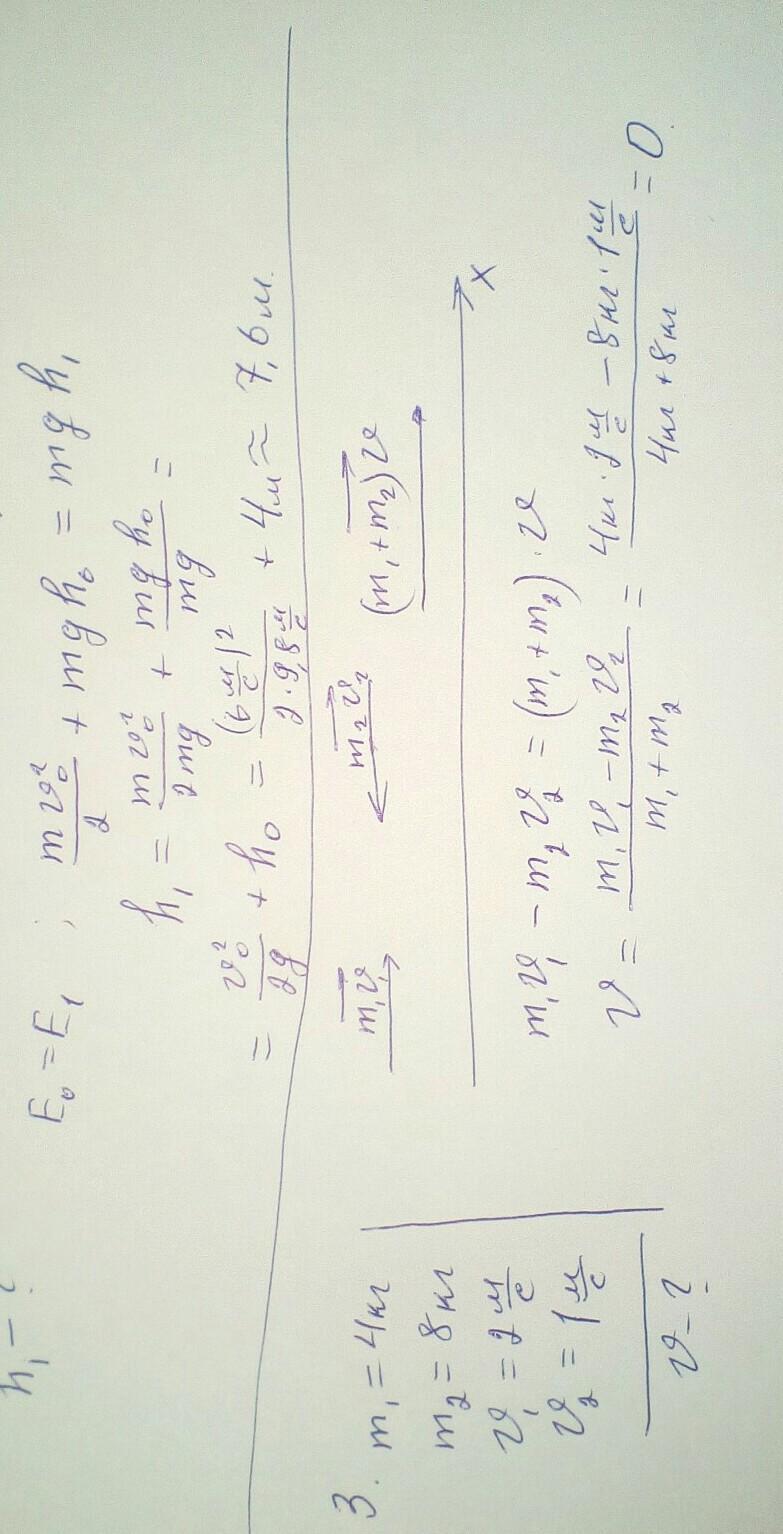 h₁ - ?
E₀ = E₁ ; mv₀²/2 + mgh₀ = mgh₁
h₁ = mv₀²/2mg + mgh₀/mg =
= v₀²/2g + h₀ = (6 м/с)²/2·9,8 м/с + 4м ≈ 7,6 м.
3. m₁ = 4кг
m₂ = 8кг
v₁ = 2 м/с
v₂ = 1 м/с
v - ?
m₁v₁ m₂v₂ (m₁+m₂)v
x
m₁v₁ - m₂v₂ = (m₁+m₂)·v
v = m₁v₁ - m₂v₂/m₁+m₂ = 4кг·2 м/с - 8кг·1 м/с/4кг+8кг = 0.